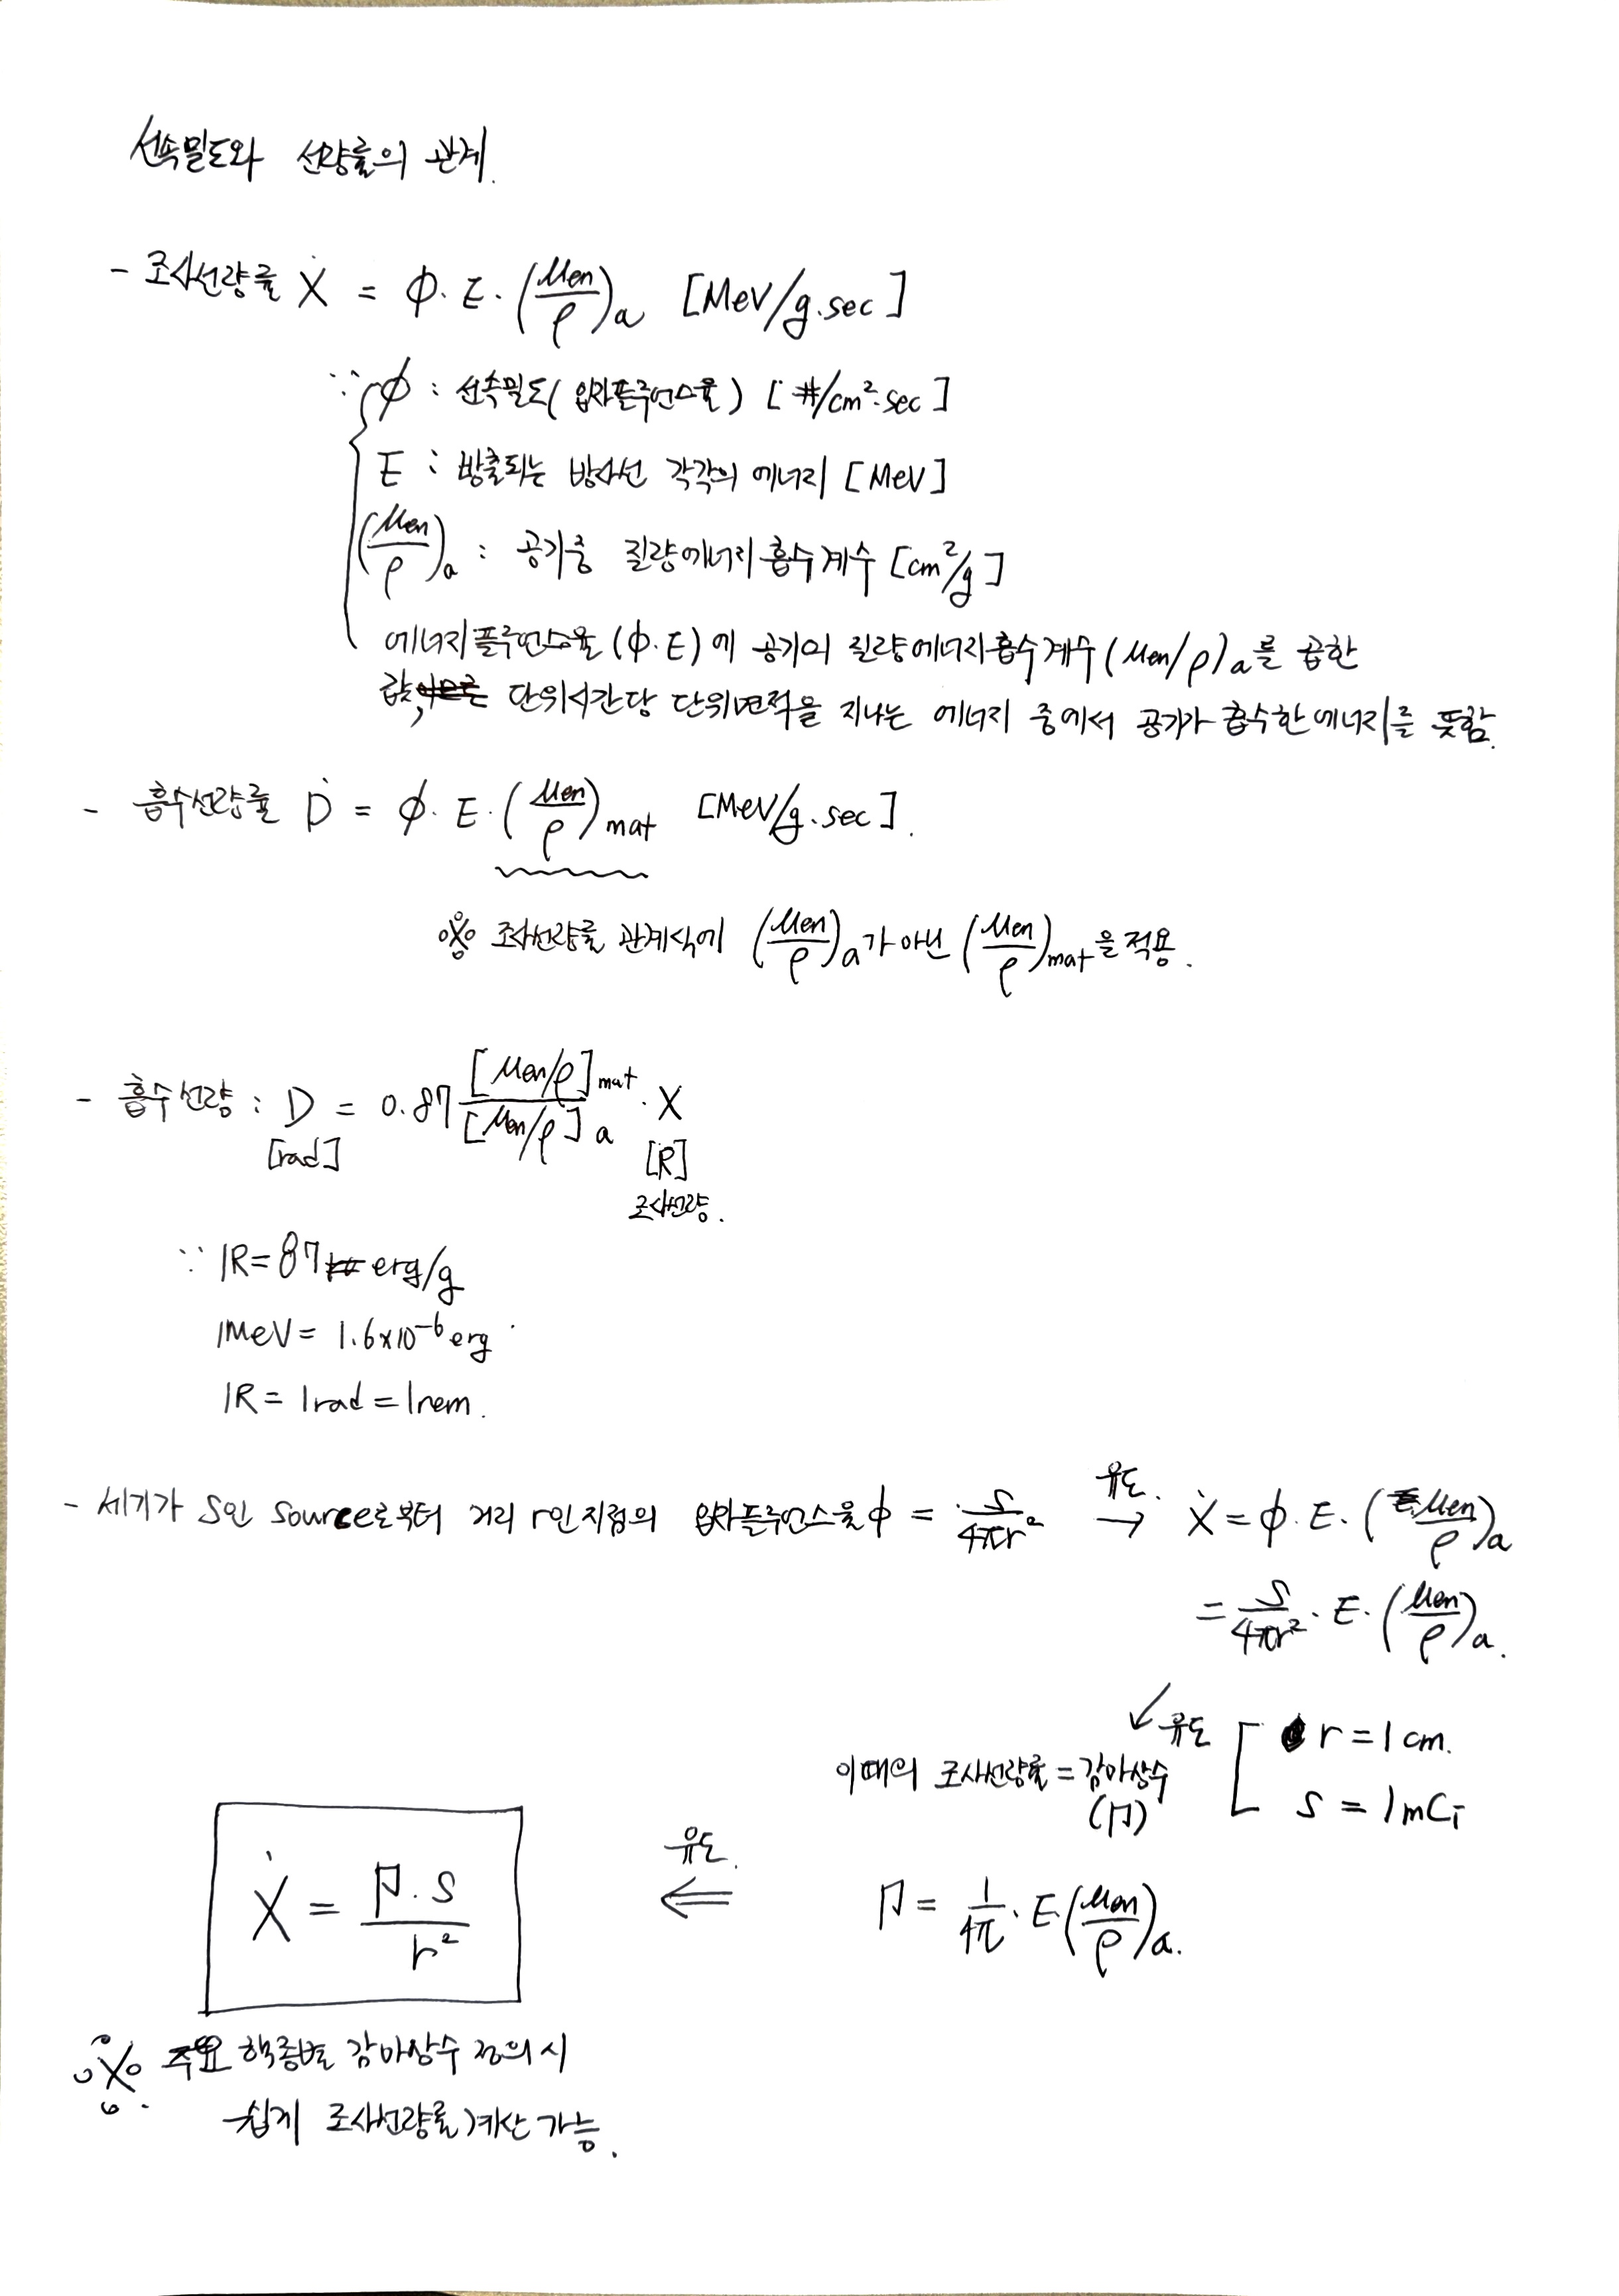 선속밀도와 선량률의 관계.
- 조사선량률 Ẋ = ϕ·E·(μen/ρ)a [MeV/g.sec]
∵ ϕ : 선속밀도(입자플루언스율) [#/cm²·sec]
E : 방출되는 방사선 각각의 에너지 [MeV]
(μen/ρ)a : 공기중 질량에너지흡수계수 [cm²/g]
에너지플루언스율(ϕ·E)에 공기의 질량에너지흡수계수(μen/ρ)a를 곱한
값, 단위시간당 단위면적을 지나는 에너지 중에서 공기가 흡수한 에너지를 뜻함.
- 흡수선량률 Ḋ = ϕ·E·(μen/ρ)mat [MeV/g.sec].
※ 조사선량률 관계식에 (μen/ρ)a가 아닌 (μen/ρ)mat을 적용.
- 흡수선량 : D = 0.87 [μen/ρ]mat/[μen/ρ]a · X
[rad] [R]
조사선량.
∵ 1R = 87 erg/g
1MeV = 1.6×10⁻⁶ erg
1R = 1rad = 1rem.
- 세기가 S인 Source로부터 거리 r인 지점의 입자플루언스율 ϕ = S/4πr² 유도. → Ẋ = ϕ·E·(μen/ρ)a
= S/4πr² · E·(μen/ρ)a.
↙ 유도 [ r = 1 cm.
이때의 조사선량률 = 감마상수 S = 1mCi
(Γ)
Γ = 1/4π · E·(μen/ρ)a.
유도. ⇐
Ẋ = Γ·S/r²
※ 주요 핵종별 감마상수 정의시
쉽게 조사선량률 계산 가능.